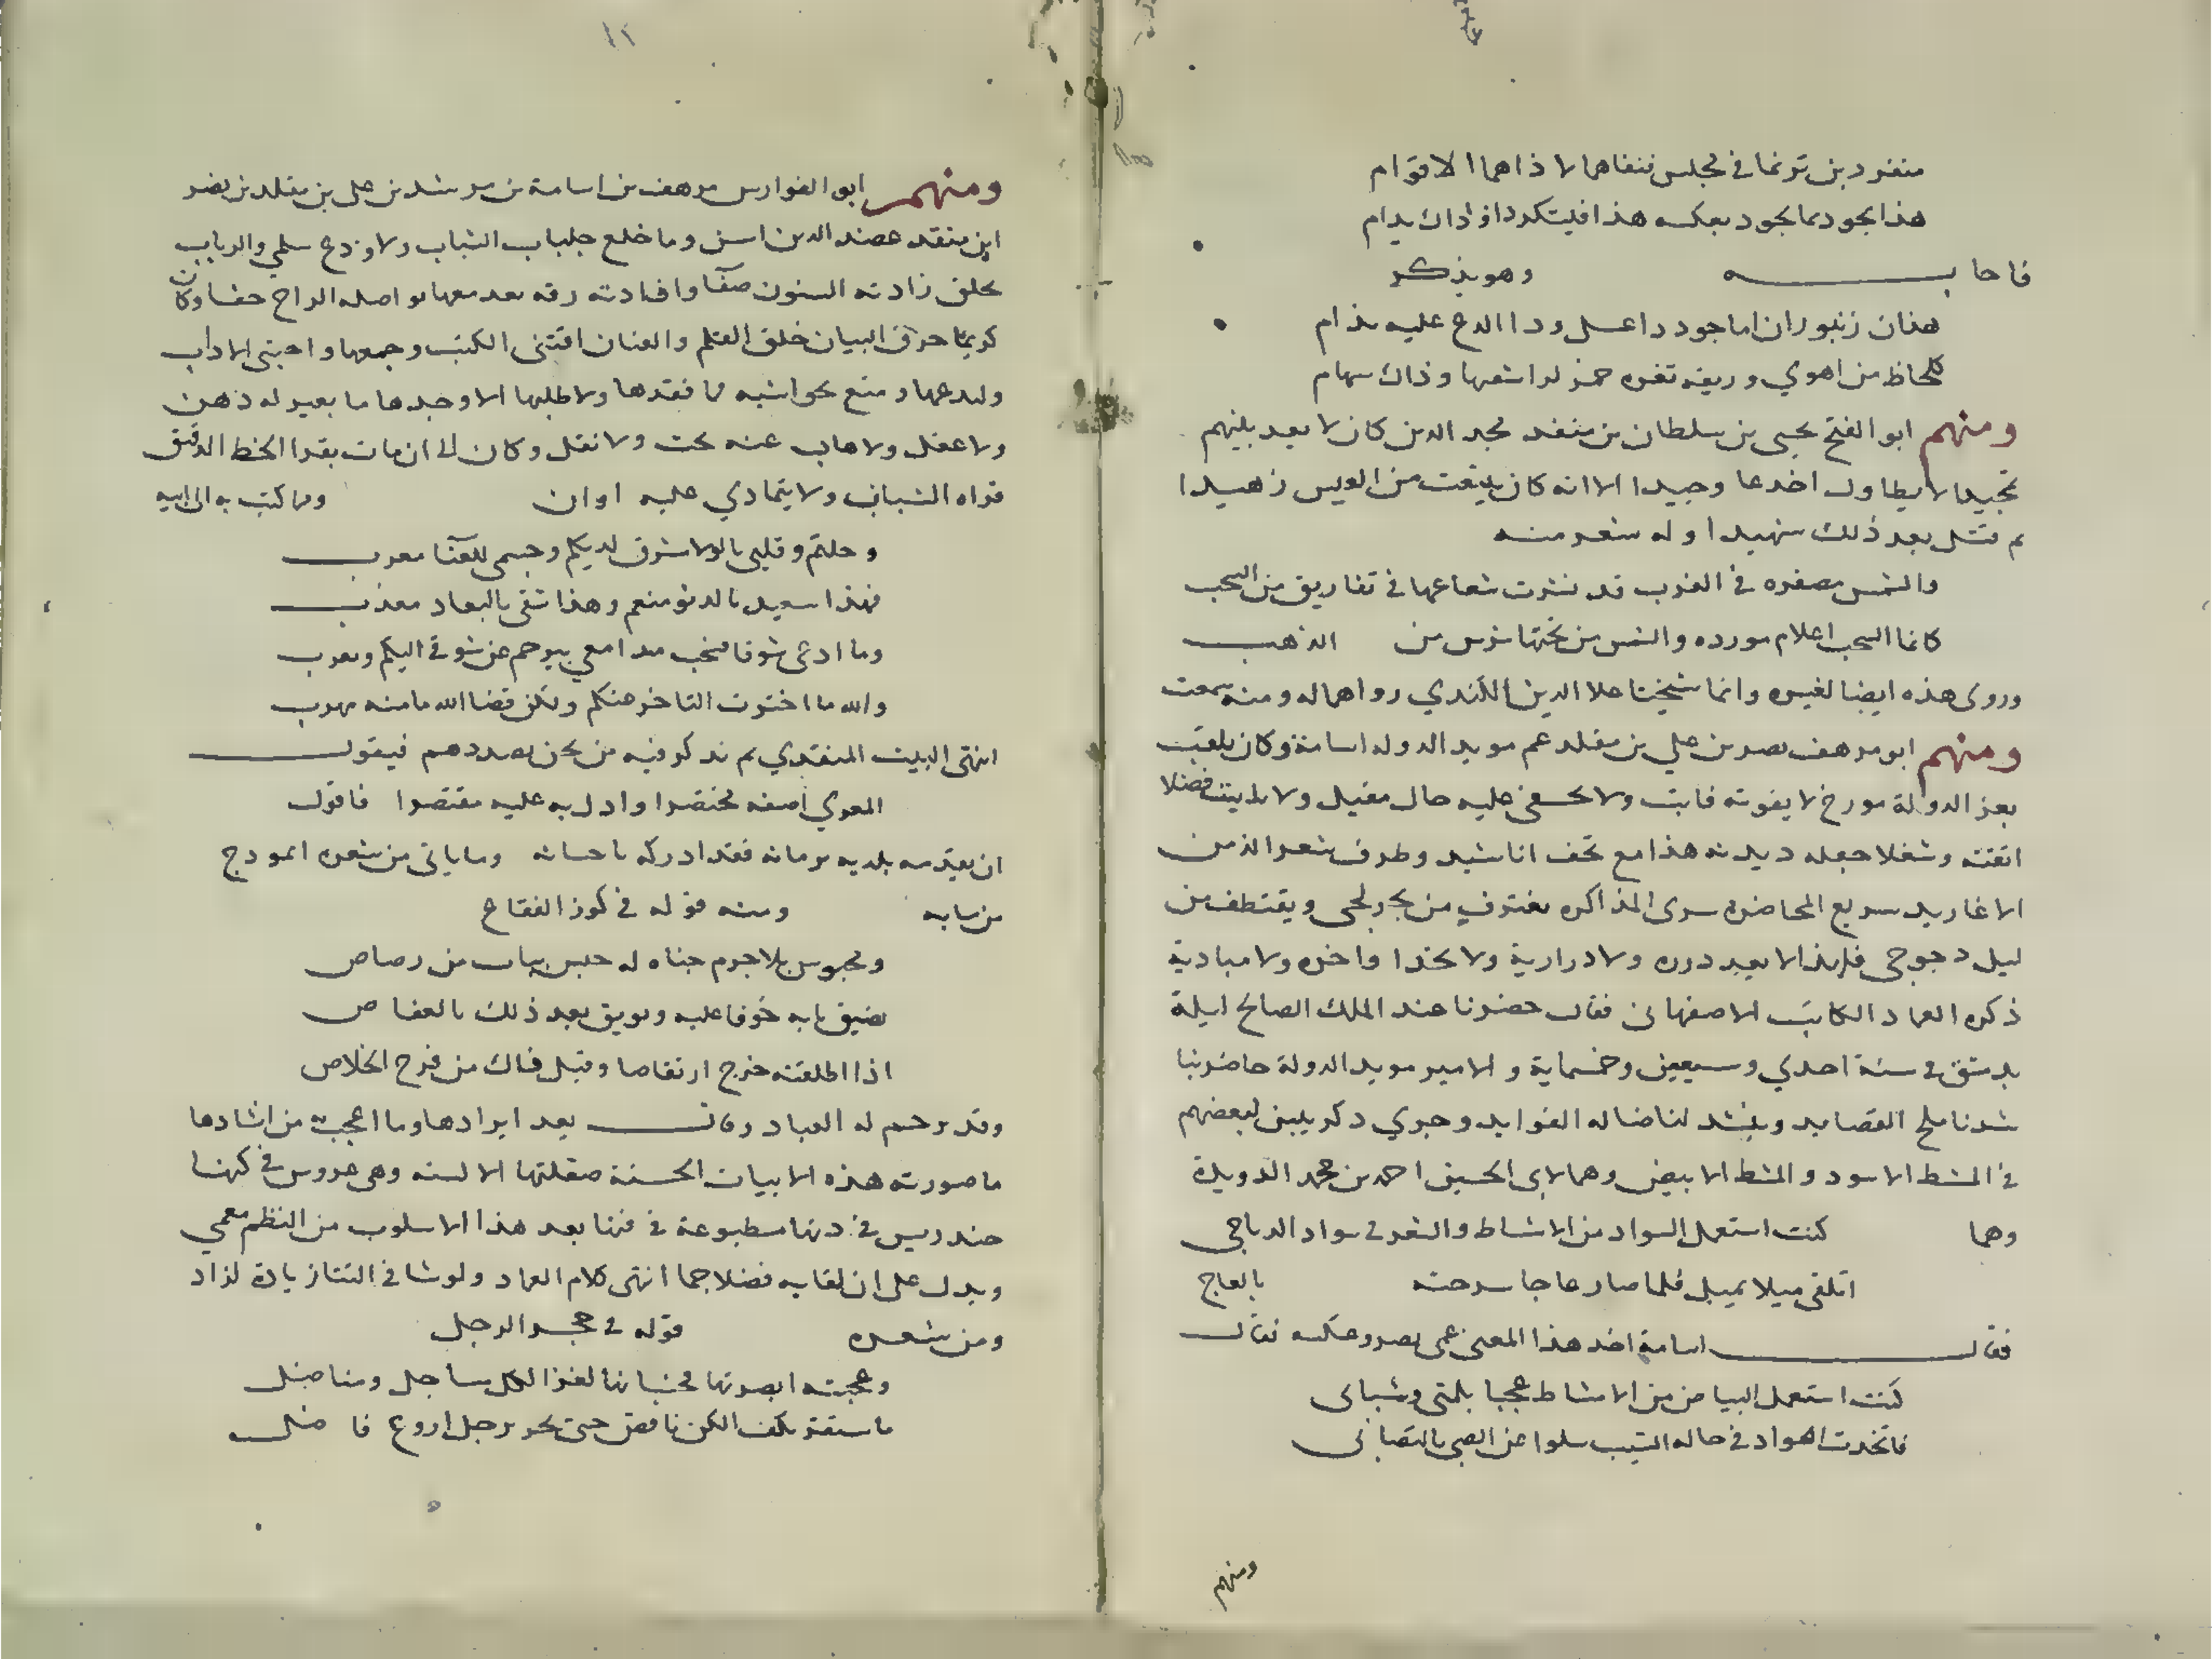 منفرد بن ترنما في مجلس فنفاهما لاذاهما الاقوام
هذا يجود بما يجود بعكسه هذا فليتكرر ذا وذاك يدام
فاجابـــه وهو يذكر
هذان زنبوران اما جود ذا عسل وذا الدغ عليه يذام
كلحاظ من اهوي وريقه ثغره حمر لدا شعبها وذاك سهام
ومنهم ابو الفتح يحيى بن سلطان بن منقذ مجد الدين كان لا يعد بلنيهم
لا يطاول اخدعا وجيدا الا انه كان يقت من العيس زهيدا
ثم قتل بعد ذلك شهيدا وله شعر منه
والشمس مصفره في الغرب قد نشرت شعاعها في تفاريق من السحب
كانما السحب اعلام مورده والشمس من تحتها ترس من الذهب
وروى هذه ايضا لغيره وانما شيخنا علا الدين الكندي رواها له ومنه سمعت
ومنهم ابو مرهف نصر بن علي بن مقلد عم مويد الدوله اسامة وكان يلقب
بعز الدولة مورخ لا يفوته فايت ولا يخفى عليه حال مقيل ولا بايت فضلا
اتقنه وشغلا جعله ديدنه هذا مع تحف اناشيد وطرف شعر الذ من
الاغاريد سريع المحاضره سرى المذاكره يغترف من بحر لجى ويقتطف من
ليل دجوجى فلهذا لا يعد درره ولا درارية ولا تحذا واخره ولا مبادية
ذكره العماد الكاتب الاصفهانى فقال حضرنا عند الملك الصالح ليلة
بدمشق في سنة احدي وسبعين وخمسماية والامير مويد الدولة حاضر بنا
شدنا ملح القصايد وينشد لنا ضاله الفوايد وجري ذكر بيتين لبعضهم
في المشط الاسود والمشط الابيض وهما لابى الحسين احمد بن محمد الدويدة
وهما كنت استعمل السواد من الامشاط والشعر في سواد الدياجى
اتلقى ميلا بميل فلما صار عاجا سرحته بالعاج
فقال اسامة اخذ هذا المعنى عمى نصر وعكسه فقال
كنت استعمل البياض من الامشاط عجبا بلمتى وشبابى
فاتخذت السواد في حاله الشيب سلوا عن الصبى بالتصابى
ومنهم
ومنهم ابو الفوارس مرهف بن اسامة بن مرشد بن على بن مقلد بن نصر
ابن منقذ عضد الدين اسن وما خلع جلباب الشباب ولا ودع سلمي والرباب
بخلق زادته السنون صفا وافادته رقه بعد معها مواصله الراح حفا وكان
كريما حرف البيان خلق القلم والعنان اقتنى الكتب وجمعها واجتبى الاداب
ومنع بحواشيه فما فقدها ولا طلبها الا وجدها ما بعير له ذهن
ولا عقل ولا هاب عنه بحت ولا نقل وكان الى ان مات يقرا الخط الدقيق
قراه الشباب ولا يتمادي عليه اوان ومما كتب به الى ابيه
رحلتم وقلبى بالولا مشرق لديكم وجسمى للعنا مغرب
فهذا سعيد بالدنو منعم وهذا شقى بالبعاد معذب
وما ادعى شوقا فسحب مدامعي تترجم عن شوقي اليكم وتعرب
والله ما اخترت التاخر عنكم ولكن قضا الله ما منه مهرب
انتهى البيت المنقذي ثم نذكر فيه من نحن بصددهم فيقول
المعري اصفه مختصرا وادل به عليه مقتصرا فاقول
ان تقدمه بلديه بزمانه فقد ادركه باحسانه وما ياتى من شعره انموذج
من بابه ومنه قوله في كوز الفقاع
ومحبوس بلا جرم جناه له حبس بباب من رصاص
يضيق بابه خوفا عليه ويوثق بعد ذلك بالعفاص
اذا اطلقته خرج ارتقاصا وقبل فاك من فرح الخلاص
وقد ترجم له العماد وقال بعد ايرادها وما اعجبت من انشادها
ما صورته هذه الابيات الحسنة صقلتها الالسنه وهى عروس في كهنا
خندريس في دنها مطبوعة في فنها بعد هذا الاسلوب من النظم معمي
ويدل على ان لقايه فضلا جما انتهى كلام العماد ولو شا في الثنا زيادة لزاد
ومن شعره قوله في حجر الرجل
وعجيبة ابصرتها فخبا تها لغزا لكل مساجل ومناضل
ما تستقر بكف الكن ناقص حتى تحر برجل اروع فاضل